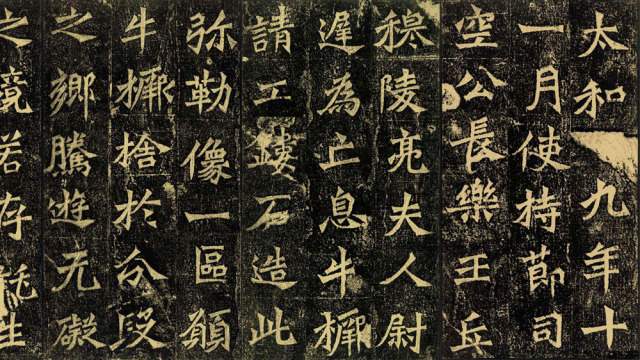 太和九年十
一月使持節司
空公長樂王丘
穆陵亮夫人尉
遲為亡息牛橛
請工鏤石造此
弥勒像一區願
牛橛捨於分段
之鄉騰遊无礙
之境若存託生